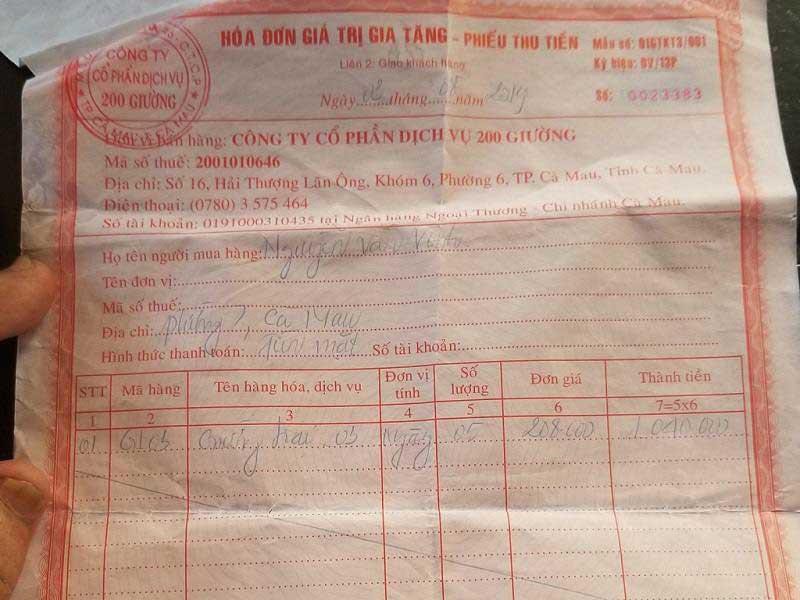 HÓA ĐƠN GIÁ TRỊ GIA TĂNG - PHIẾU THU TIỀN
Mẫu số: 01GTKT3/001
Liên 2: Giao khách hàng
Ký hiệu: DV/13P
Ngày 03 tháng 08 năm 2019
Số: 0023383
CÔNG TY
CỔ PHẦN DỊCH VỤ
200 GIƯỜNG
TP. CÀ MAU - T. CÀ MAU
Đơn vị bán hàng: CÔNG TY CỔ PHẦN DỊCH VỤ 200 GIƯỜNG
Mã số thuế: 2001010646
Địa chỉ: Số 16, Hải Thượng Lãn Ông, Khóm 6, Phường 6, TP. Cà Mau, Tỉnh Cà Mau.
Điện thoại: (0780) 3 575 464
Số tài khoản: 0191000310435 tại Ngân hàng Ngoại Thương - Chi nhánh Cà Mau.
Họ tên người mua hàng: Nguyễn Văn
Tên đơn vị:
Mã số thuế:
Địa chỉ: phường 7, Cà Mau
Hình thức thanh toán: tiền mặt Số tài khoản:
STT Mã hàng Tên hàng hóa, dịch vụ Đơn vị tính Số lượng Đơn giá Thành tiền
1 2 3 4 5 6 7=5x6
01 G103 03 Ngày 05 208.000 1.040.000